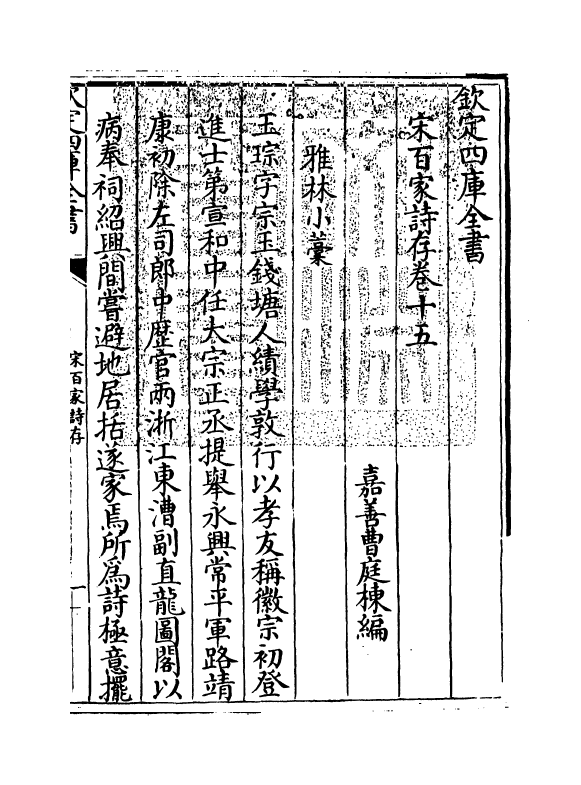 欽定四庫全書
宋百家詩存卷十五
嘉善曹庭棟編
雅林小藁
王琮字宗玉錢塘人績學敦行以孝友稱徽宗初登
進士第宣和中任大宗正丞提舉永興常平軍路靖
康初除左司郎中歴官兩浙江東漕副直龍圖閣以
病奉祠紹興間嘗避地居括遂家焉所爲詩極意擺
欽定四庫全書
宋百家詩存
一